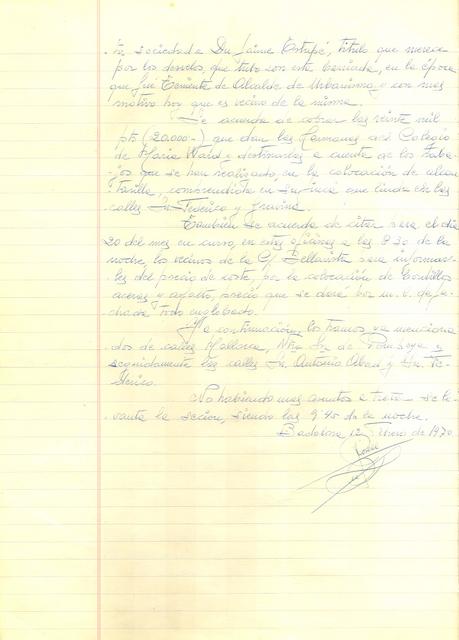 ta sociedad a Dn Jaime Estupé, titulo que merece
por los desvelos, que tubo con esta barriada, en la época
que fué Teniente de Alcalde de Urbanismo y con mas
motivo hoy que es vecino de la misma.
Se acuerda de cobrar las veinte mil
pts (20.000-) que dan las Hermanas del Colegio
de Maria Ward y destinarlas a cuenta de los traba-
jos que se han realizado, en la colocación de alcan
tarilla, comprendida en su finca que linda con las
calles Sn. Federico y Gravina.
Tambien se acuerda de citar para el dia
20 del mes en curso, en estas oficinas a las 8'30 de la
noche, los vecinos de la C/ Bellavista para informar-
les del precio de coste, por la colocación de bordillos
aceras y asfalto, precio que se dará por m. l. de fa-
chada todo englobado.
Y a continuación, los tramos ya menciona-
dos de calles Mallorca, Nra Sra de y
seguidamente las calles Sn. Antonio Abad y Sn. Fe-
derico.
No habiendo mas asuntos a tratar se le-
vanta la sección, siendo las 9'45 de la noche.
Badalona 12 Enero de 1970